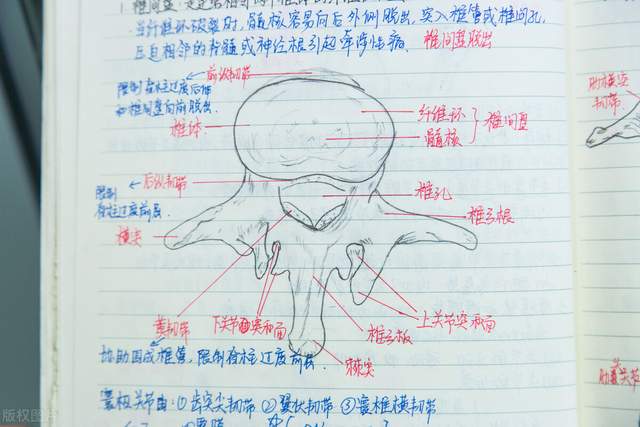 当纤维环破裂时,髓核容易向后外侧脱出,突入椎管或椎间孔,
压迫相邻的脊髓或神经根引起牵涉性痛。椎间盘脱出
前纵韧带
限制脊柱过度后伸
和椎间盘向前脱出.
椎体
纤维环
髓核
椎间盘
后纵韧带
限制
脊柱过度前屈.
椎孔
椎弓根
横突
黄韧带
下关节突和面
椎弓板
上关节突和面
棘突
协助围成椎管,限制脊柱过度前屈.
寰枢关节由:①齿突尖韧带 ②翼状韧带 ③寰椎横韧带
肋横突
韧带.
版权图片